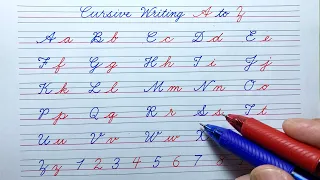 Cursive Writing A to Z
A a B b C c D d E e
F f G g H h I i J j
K k L l M m N n O o
P p Q q R r S s T t
U u V v W w X
Z z 1 2 3 4 5 6 7